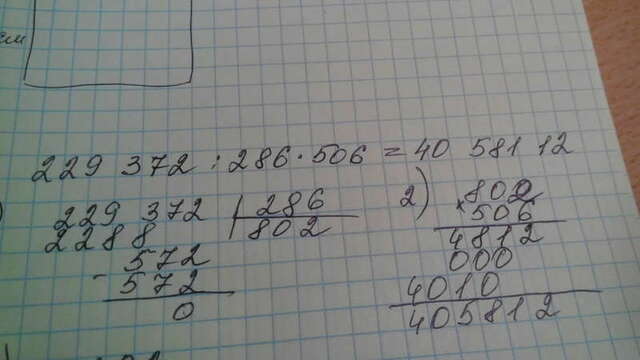 см
229 372 : 286 · 506 = 40 581 12
) 229 372 | 286
2288 802
572
- 572
0
2) 802
× 506
4812
000
4010
405812